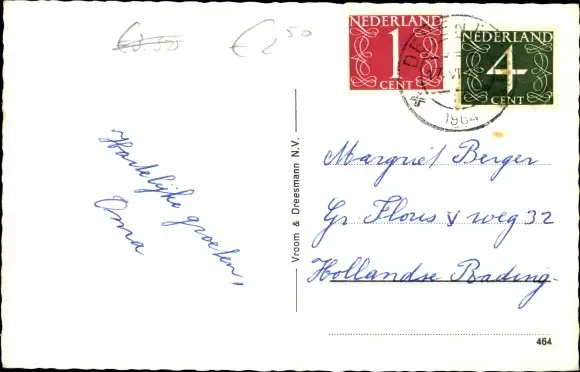 €3 50
€2 50
NEDERLAND
1
CENT
NEDERLAND
4
CENT
1964
Hartelijke groeten,
Oma
Vroom & Dreesmann N.V.
Margriet Berger
Gr. Floris V weg 32
Hollandse Rading
464